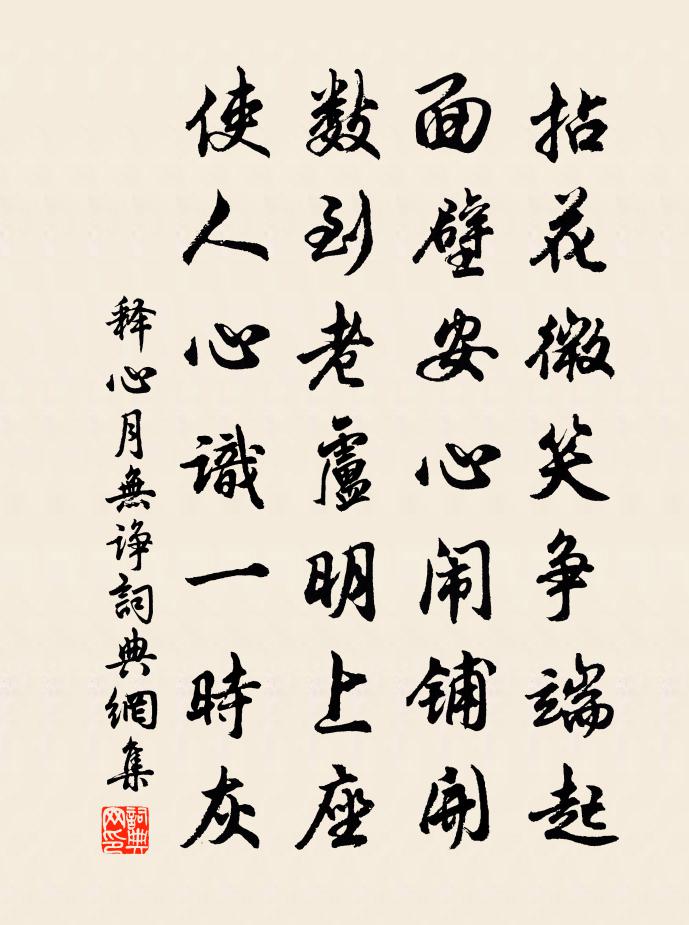 拈花微笑争端起
面壁安心闹铺開
数到老盧明上座
使人心識一時灰
释心月無诤詞典網集
詞典
网印